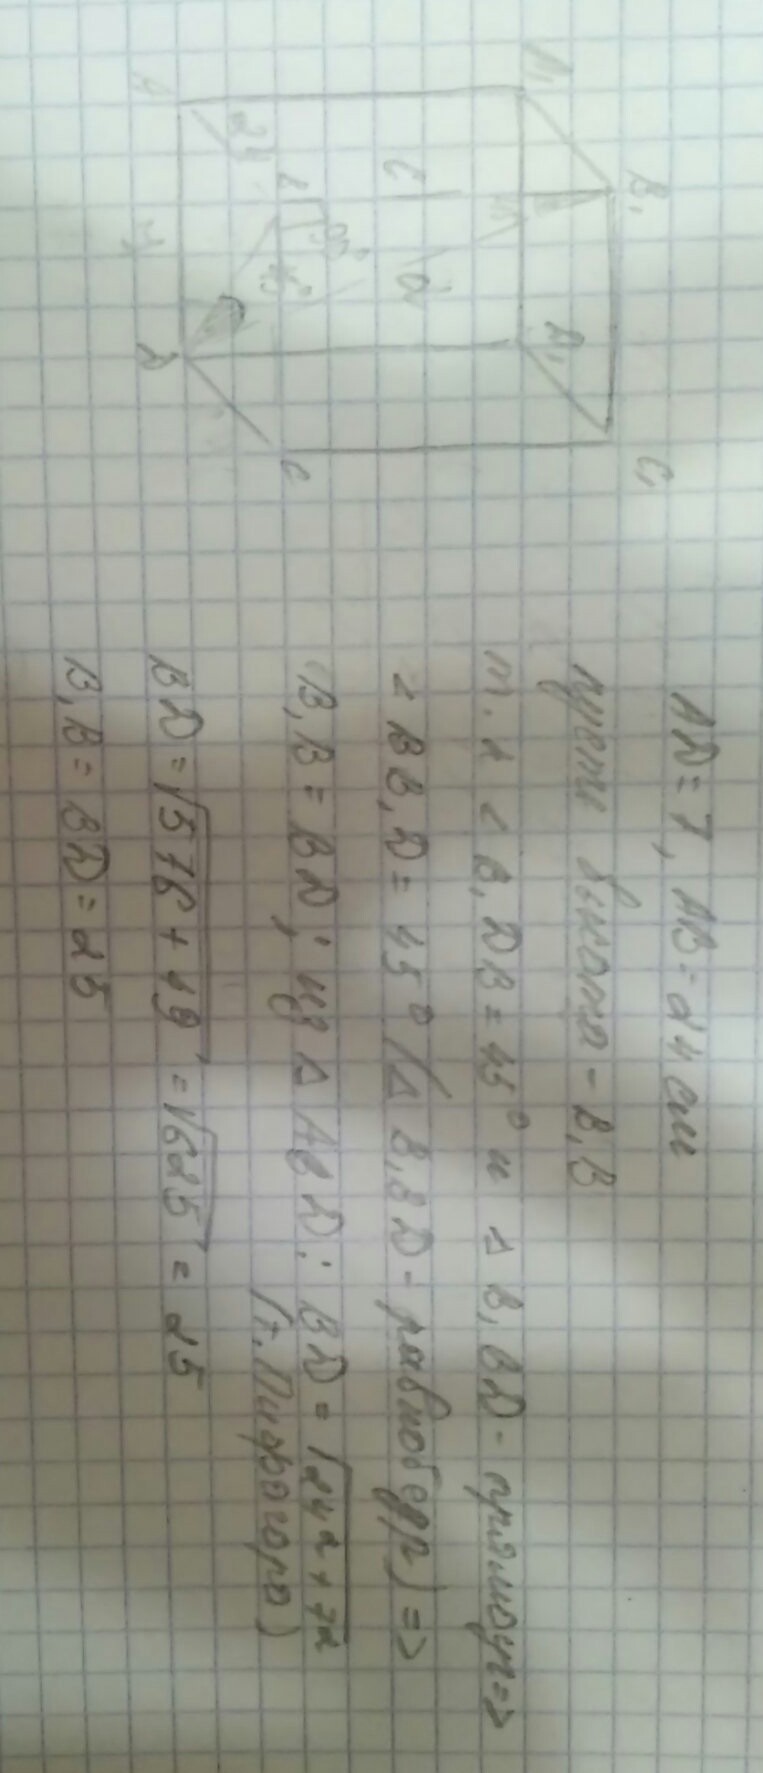 A₁
B₁
C₁
D₁
A
B
C
D
24
7
90°
45°
AD = 7, AB = 24 см
пусть высота - B₁B
т.к < B₁DB = 45° и Δ B₁BD - прямоуг =>
< BB₁D = 45° (Δ B₁BD - равнобедр) =>
B₁B = BD; из Δ ABD: BD = √24² + 7²
(т. Пифагора)
BD = √576 + 49 = √625 = 25
B₁B = BD = 25